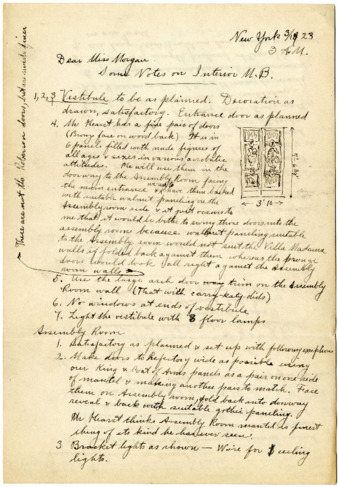 New York 3/19 23
3 A.M.
Dear Miss Morgan
Some Notes on Interior M.B.
1,2,3 Vestibule to be as planned. Decoration as
drawn, satisfactory. Entrance door as planned
4. Mr Hearst has a fine pair of doors
(Bronze face on wood back) It is in
6 panels filled with nude figures of
all ages & sizes in various acrobatic
attitudes. He will use them in the
doorway to the Assembly Room facing
the main entrance & have them backed
with suitable walnut paneling on the
Assembly room side & it occurs to
me that it would be better to swing these doors into the
assembly room because walnut paneling suitable
to the Assembly room would not suit the Villa Madama
walls if folded back against them whereas the bronze
doors would look all right against the assembly
room walls
5. Use the large arch door way from on the Assembly
Room wall (That with carry-atydids)
6. No windows at ends of vestibule
7. Light the vestibule with 8 floor lamps
Assembly Room
1. Satisfactory as planned & set up with following exceptions
2. Make doors to Refectory wide as possible using
one King & Port of Amds panels as a pair on one side
of mantel & making another pair to match. Face
them on Assembly room fold back into doorway
reveal & back with suitable gothic paneling.
Mr Hearst thinks Assembly Room mantel is finest
thing of its kind he has ever seen.
3 Bracket lights as shown — Wire for ceiling
lights.
3' 11"
These are not the Peterson doors, but are much finer